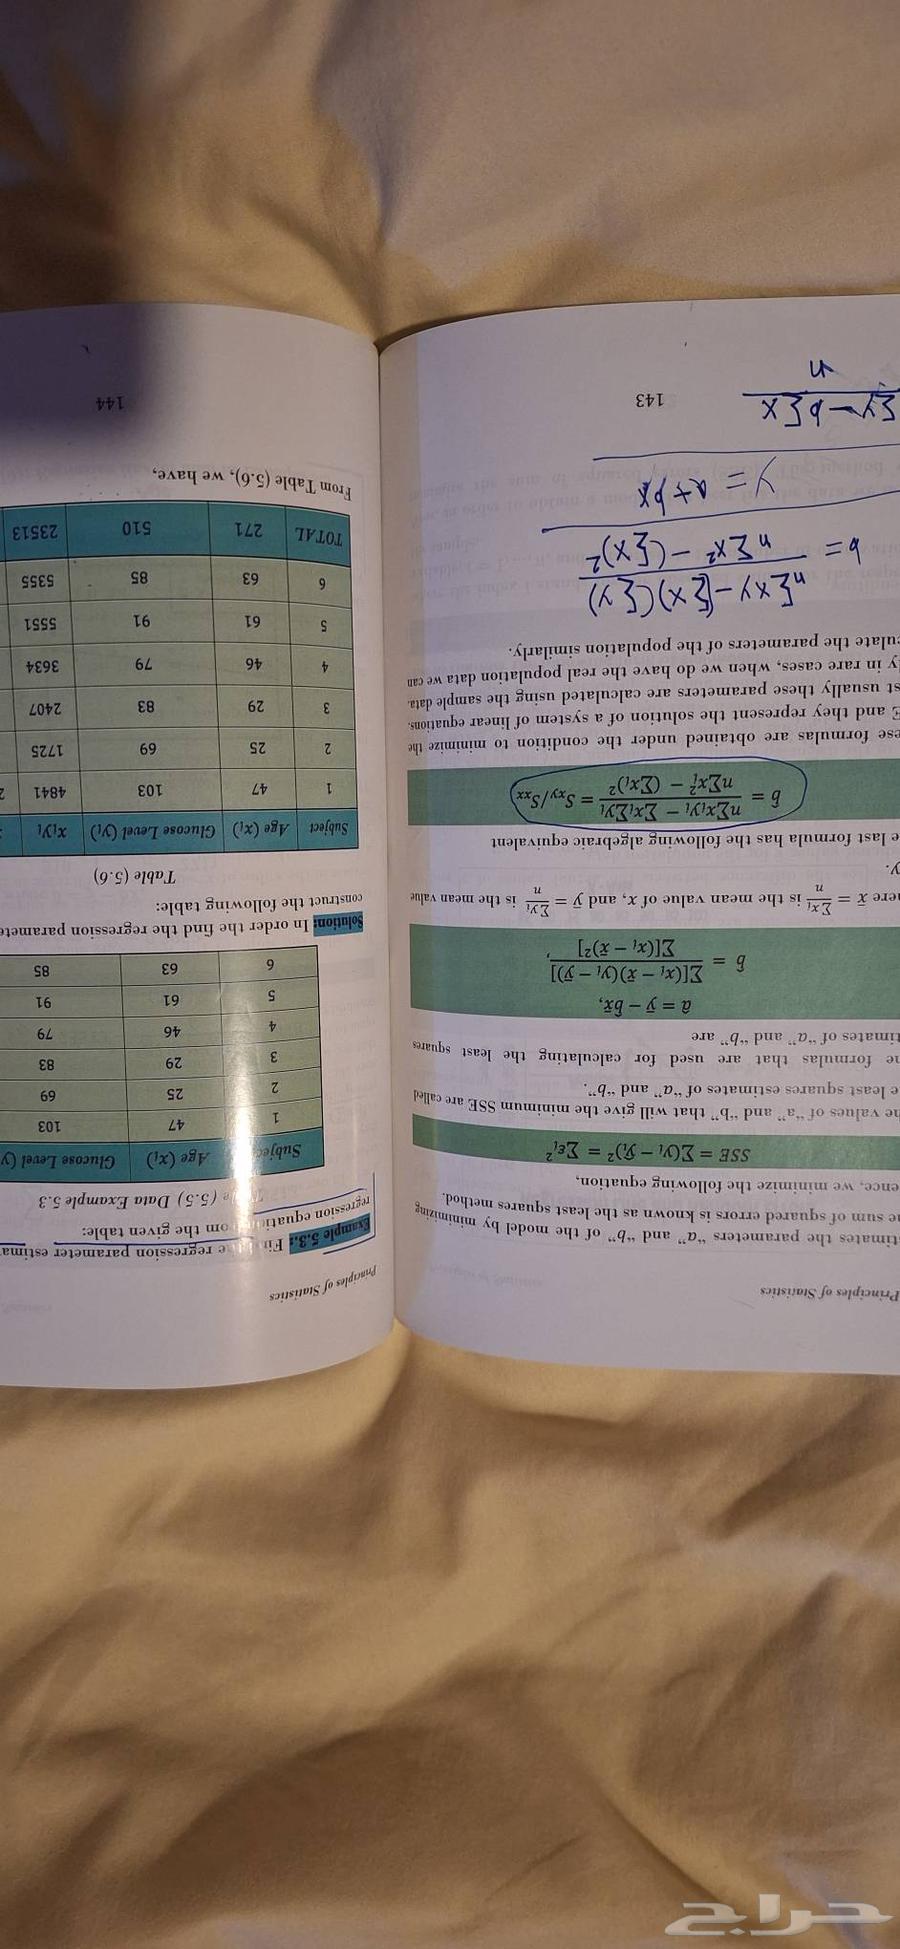 Principles of Statistics
timates the parameters "a" and "b" of the model by minimizing
he sum of squared errors is known as the least squares method.
ence, we minimize the following equation,
SSE = ∑(yᵢ − ŷᵢ)² = ∑εᵢ²
he values of "a" and "b" that will give the minimum SSE are called
e least squares estimates of "a" and "b".
he formulas that are used for calculating the least squares
timates of "a" and "b" are
â = ȳ − b̂x̄,
b̂ = ∑[(xᵢ − x̄)(yᵢ − ȳ)] / ∑[(xᵢ − x̄)²],
here x̄ = ∑xᵢ/n is the mean value of x, and ȳ = ∑yᵢ/n is the mean value
y.
e last formula has the following algebraic equivalent
b̂ = n∑xᵢyᵢ − ∑xᵢ∑yᵢ / n∑xᵢ² − (∑xᵢ)² = Sxy/Sxx
ese formulas are obtained under the condition to minimize the
E and they represent the solution of a system of linear equations.
st usually these parameters are calculated using the sample data.
ly in rare cases, when we do have the real population data we can
culate the parameters of the population similarly.
b = n∑xy − (∑x)(∑y) / n∑x² − (∑x)²
y = a + bx
∑y − b∑x / n
143
Principles of Statistics
Example 5.3: Find the regression parameter estima
regression equation from the given table:
(5.5) Data Example 5.3
Subject Age (xᵢ) Glucose Level (y
1 47 103
2 25 69
3 29 83
4 46 79
5 61 91
6 63 85
Solution: In order the find the regression paramete
construct the following table:
Table (5.6)
Subject Age (xᵢ) Glucose Level (yᵢ) xᵢyᵢ
1 47 103 4841 2
2 25 69 1725
3 29 83 2407
4 46 79 3634
5 61 91 5551
6 63 85 5355
TOTAL 271 510 23513
From Table (5.6), we have,
144
حراج